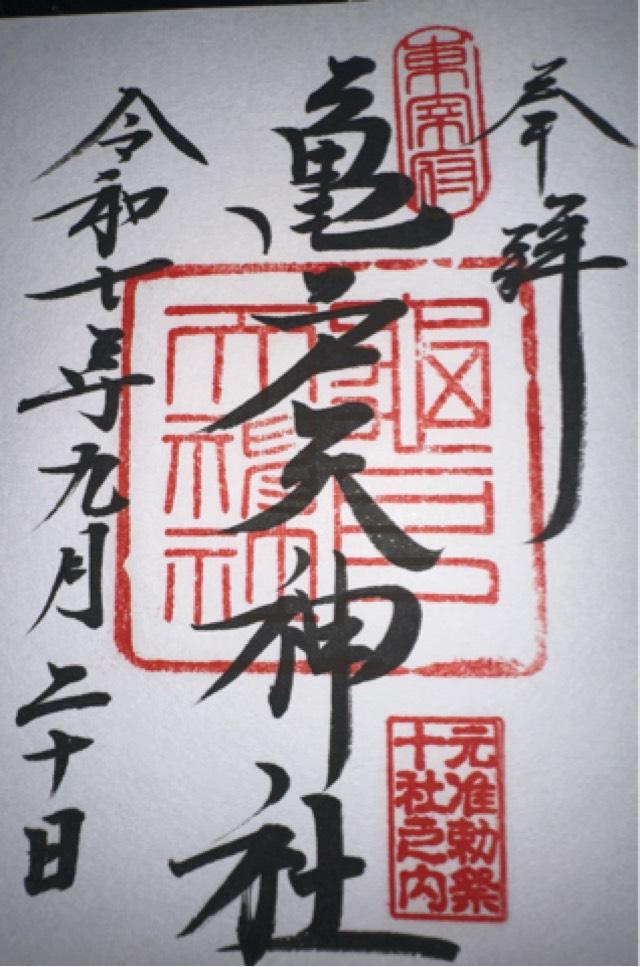 奉拝
東宰府
亀戸天神社
龜戸天神社
元准勅祭
十社之内
令和七年九月二十日